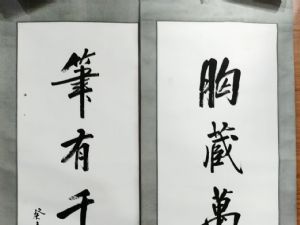 胸藏萬
筆有千
癸